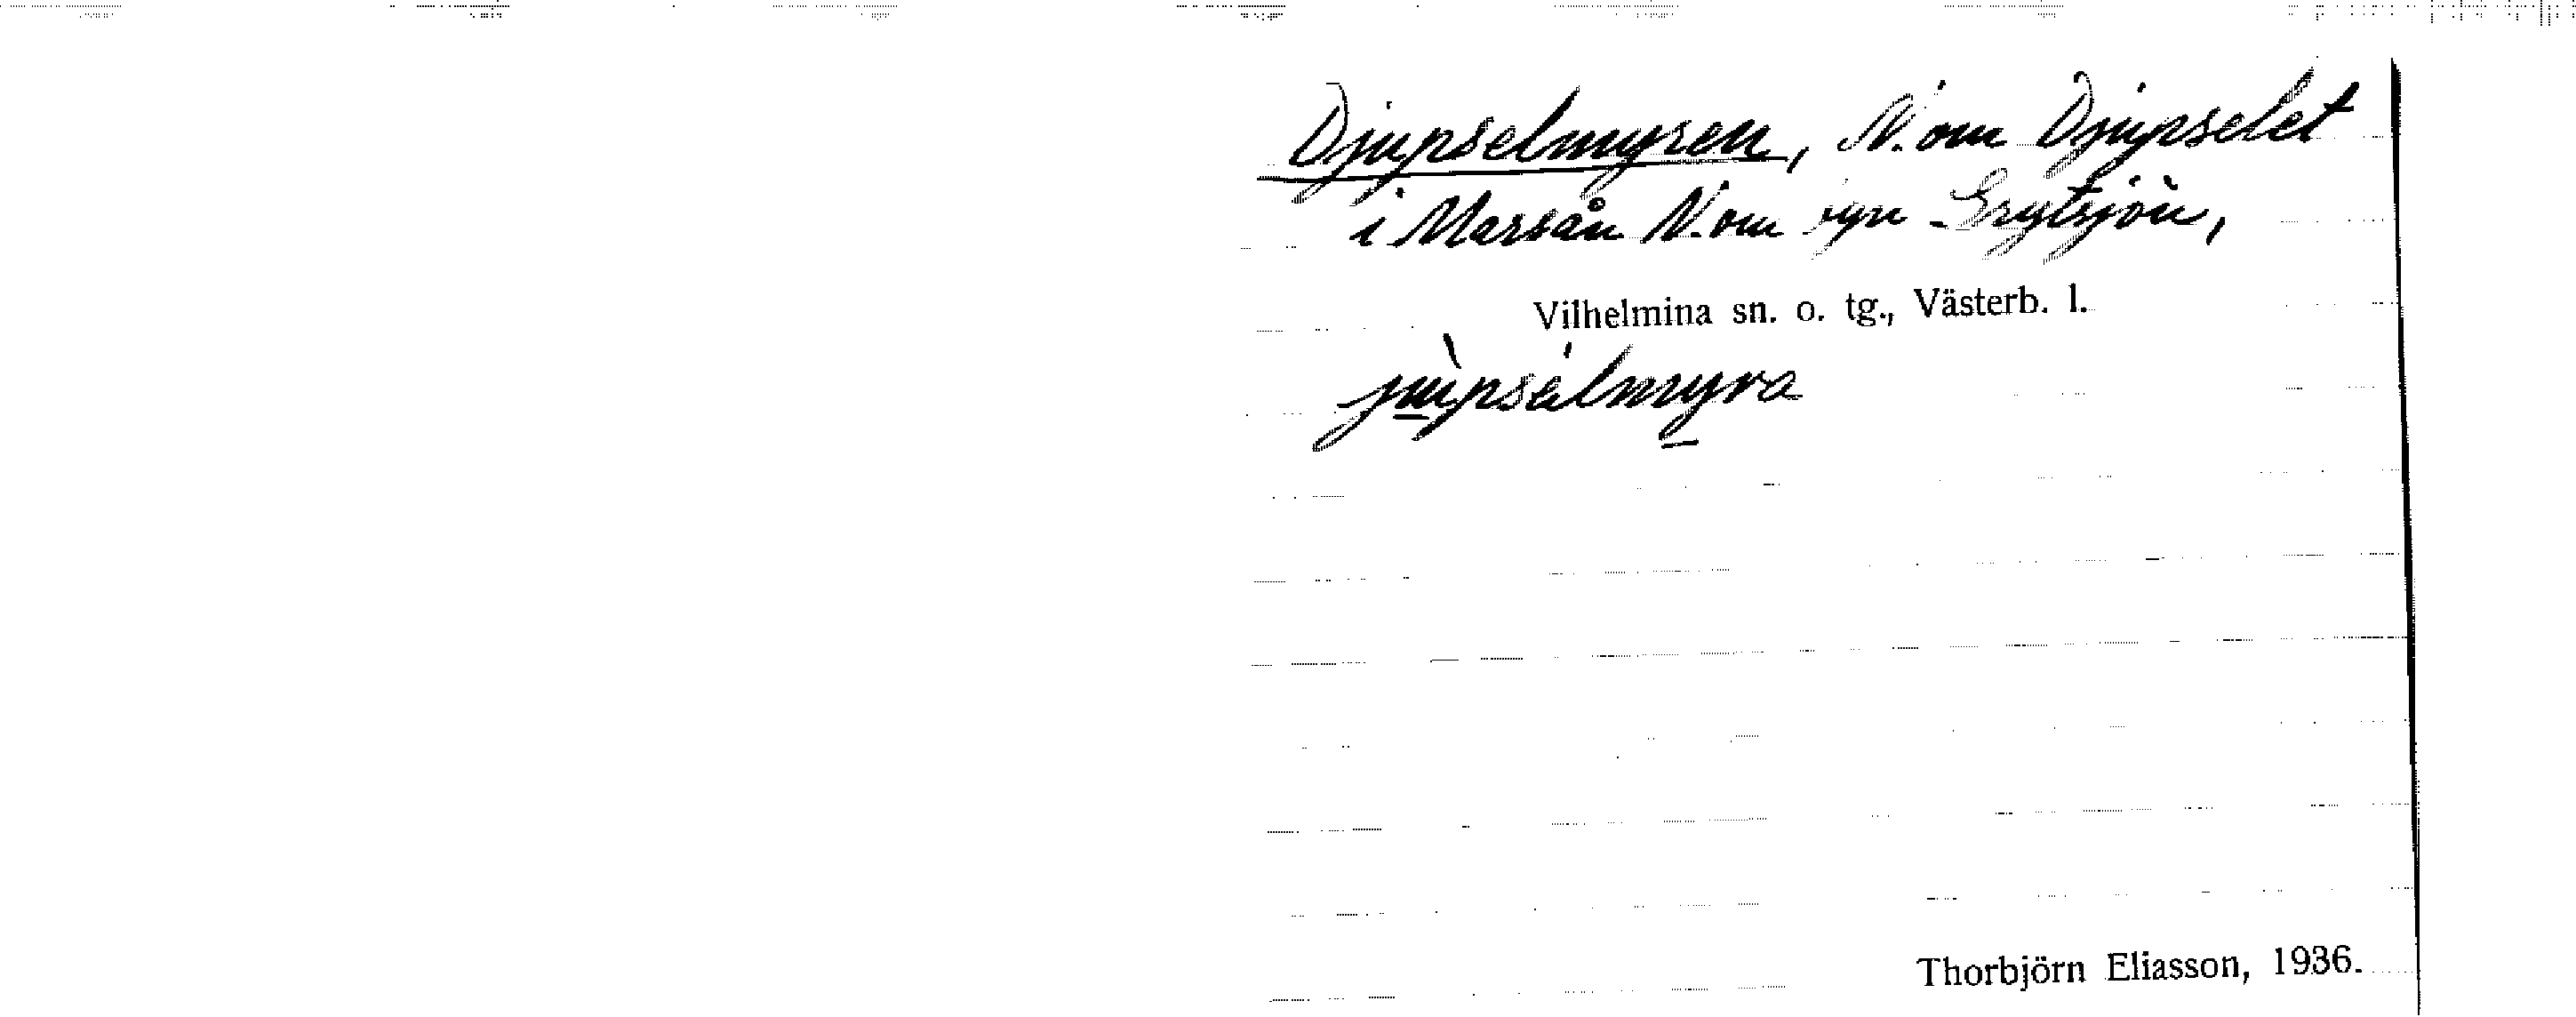 Djupselmyren, N. om Djupselet
i Marsån N. om byn Grytsjön,
Vilhelmina sn. o. tg., Västerb. l.
Thorbjörn Eliasson, 1936.